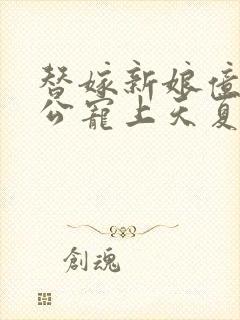 替嫁新娘億
公寵上天夏
創魂